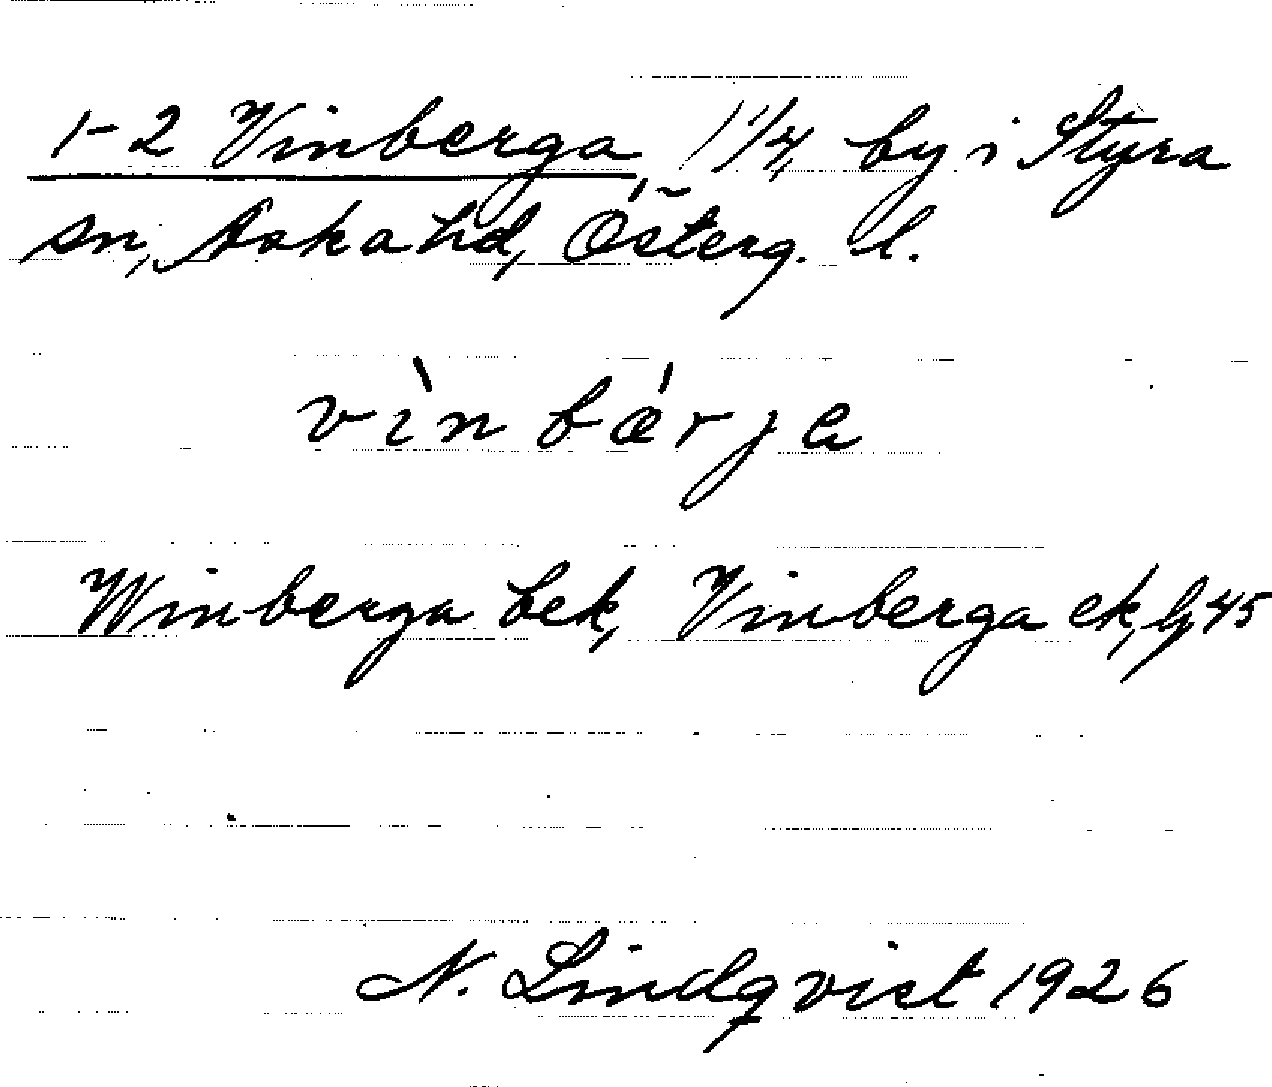 1-2 Vinberga, 1 1/4, by i Styra
sn, Aska hd, Österg. l.
vìn bǽrja
Winberga bek, Vinberga ek, Gj 45
N. Lindqvist 1926